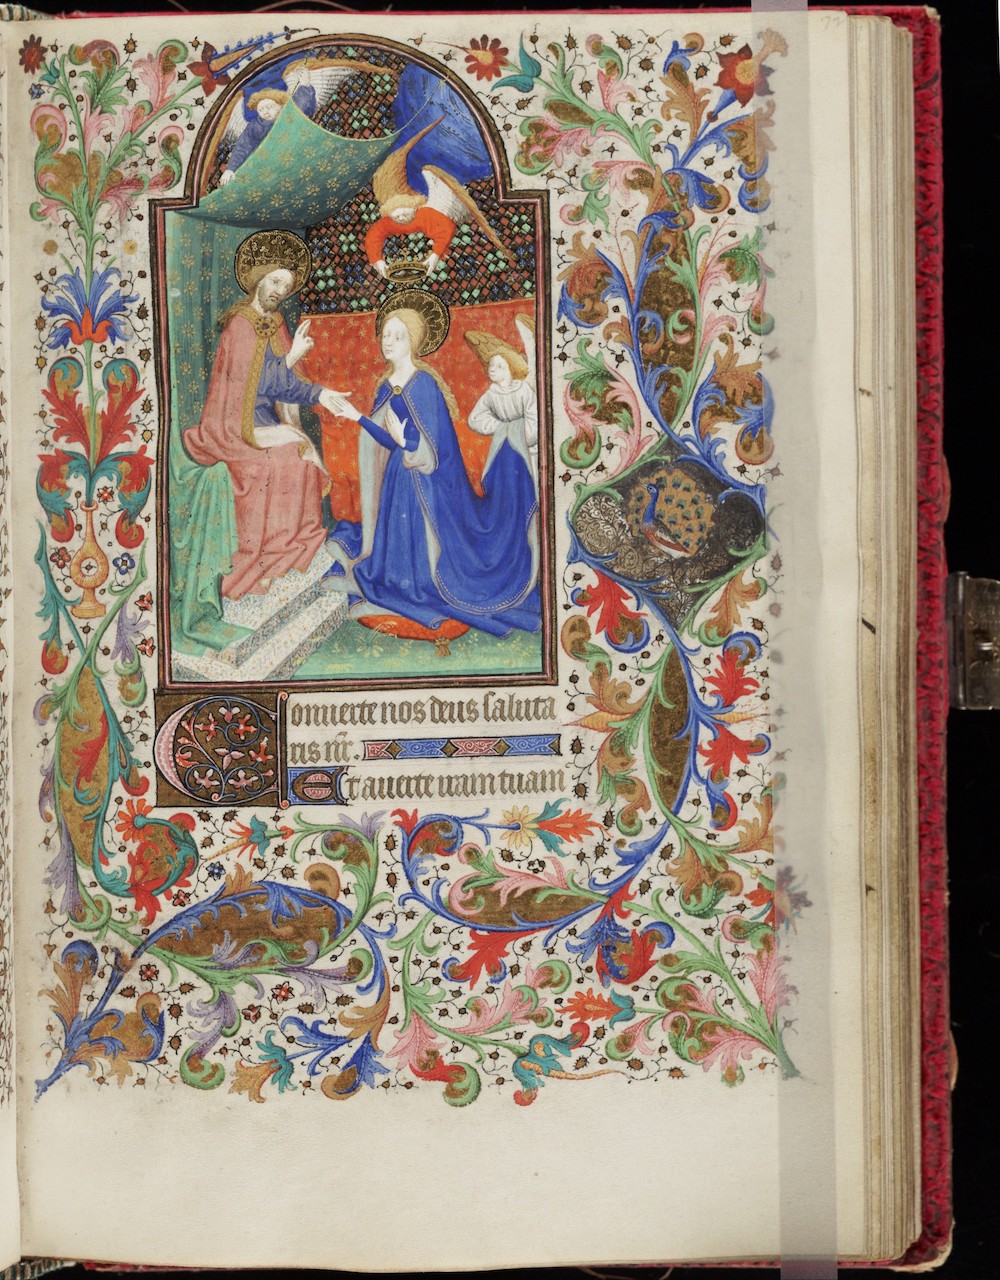 Conuerte nos deus saluta
ris nr̃.
Et auerte iram tuam